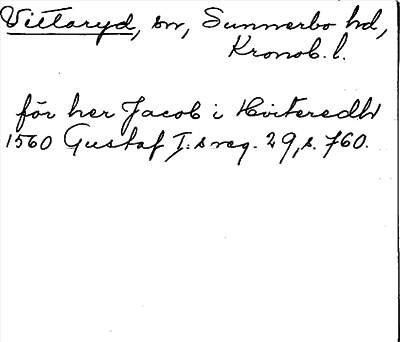 Vittaryd, sn, Sunnerbo hd,
Kronob. l.
för her Jacob i Hviteredh
1560 Gustaf I:s reg. 29, s. 760.